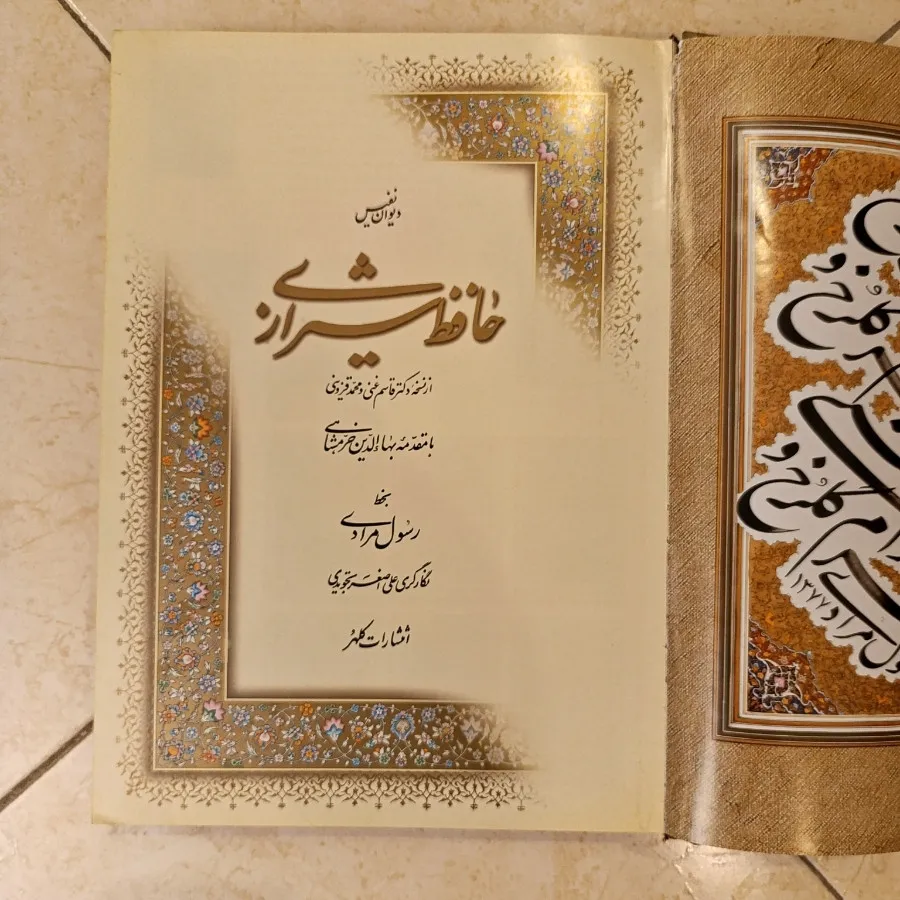 دیوان نفیس
حافظ شیرازی
از نسخه دکتر قاسم غنی و محمد قزوینی
با مقدمه بهاءالدین خرمشاهی
بخط
رسول مرادی
نگارگری علی اصغر تجویدی
انتشارات کلهر
۱۳۷۷